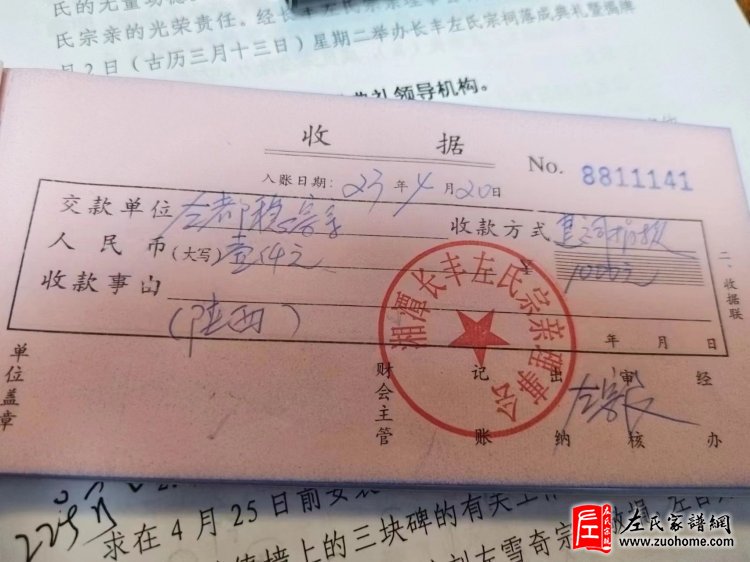 氏宗亲的光荣责任。经长丰左氏宗亲理事
月2日（古历三月十三日）星期二举办长丰左氏宗祠落成典礼暨揭牌
典礼领导机构。
收 据
No. 8811141
入账日期：23年4月20日
交款单位 左都 收款方式 建祠捐款
人民币(大写)壹仟元 1000元
收款事由
(陕西)
年 月 日
二、收据联
湘潭长丰左氏宗亲理事会
单位盖章
财会主管 记账 出纳 审核 经办
229
求在4月25日前
墙上的三块碑的有关工
左雪奇宗
左氏家谱網
www.zuohome.com